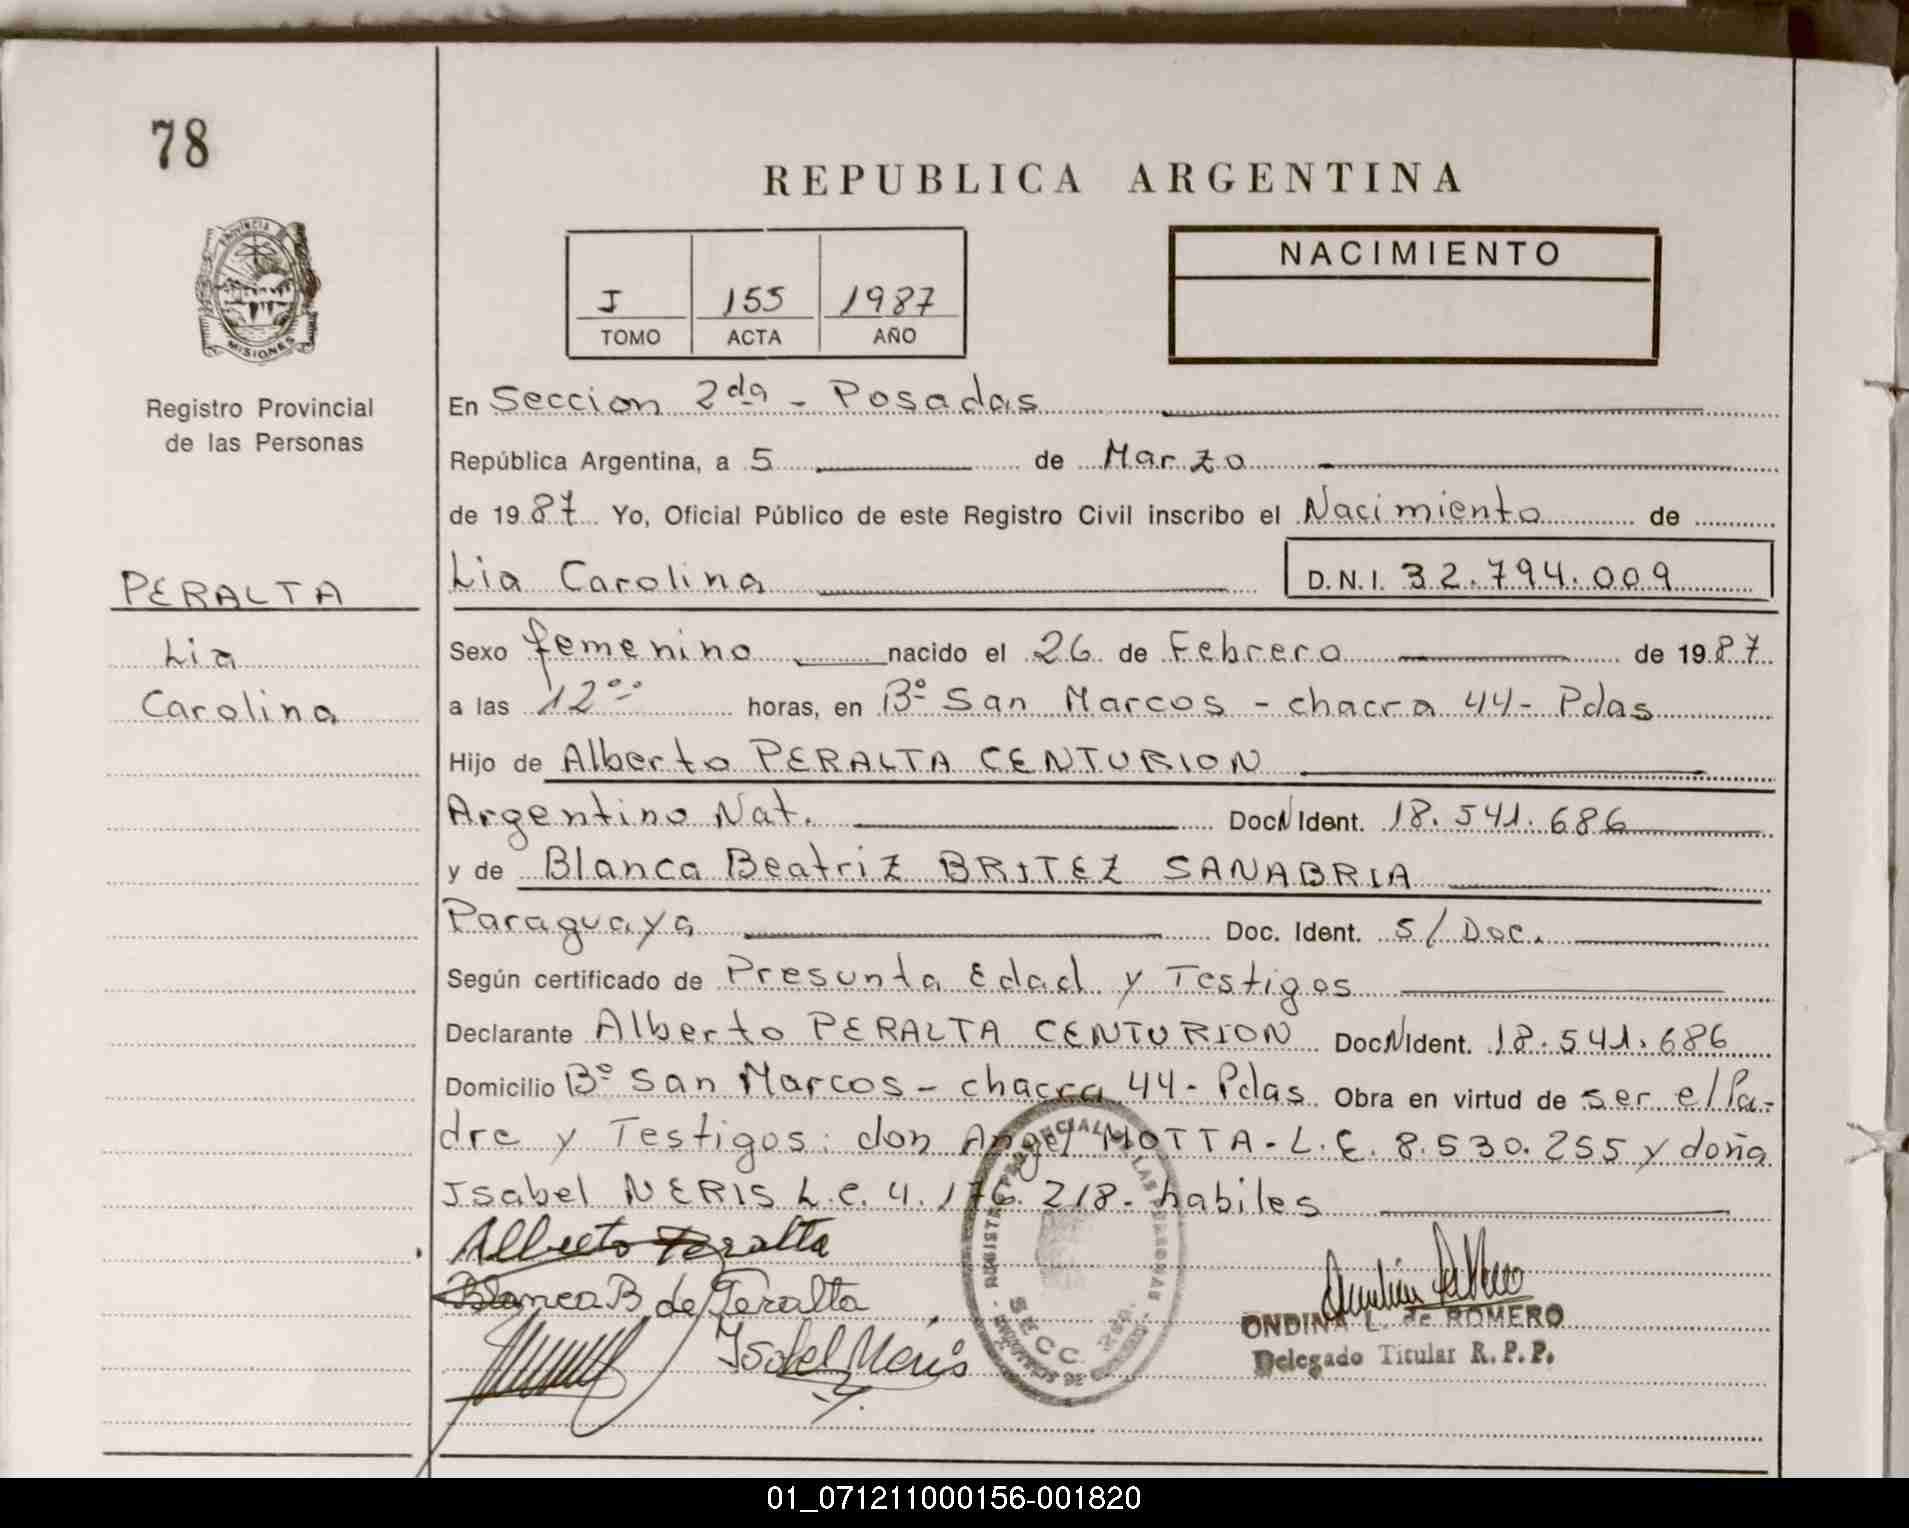 78
REPUBLICA ARGENTINA
PROVINCIA DE
MISIONES
Registro Provincial
de las Personas
J 155 1987
TOMO ACTA AÑO
NACIMIENTO
En Seccion 2da - Posadas
República Argentina, a 5 de Marzo
de 1987 Yo, Oficial Público de este Registro Civil inscribo el Nacimiento de
PERALTA
Lia
Carolina
Lia Carolina D.N.I. 32.794.009
Sexo femenino nacido el 26 de Febrero de 1987
a las 12°° horas, en Bº San Marcos - chacra 44 - Pdas
Hijo de Alberto PERALTA CENTURION
Argentino Nat. DocN Ident. 18.541.686
y de Blanca Beatriz BRITEZ SANABRIA
Paraguaya Doc. Ident. S/Doc.
Según certificado de Presunta Edad y Testigos
Declarante Alberto PERALTA CENTURION DocNIdent. 18.541.686
Domicilio Bº San Marcos - chacra 44 - Pdas Obra en virtud de ser el Pa-
dre y Testigos: don Angel MOTTA - L.E. 8.530.255 y doña
Isabel NERIS L.C. 4.176.218 - habiles
Alberto Peralta
Blanca B de Peralta
Isabel Neris
SECC. 2da.
ONDINA L. de ROMERO
Delegado Titular R.P.P.
01_071211000156-001820